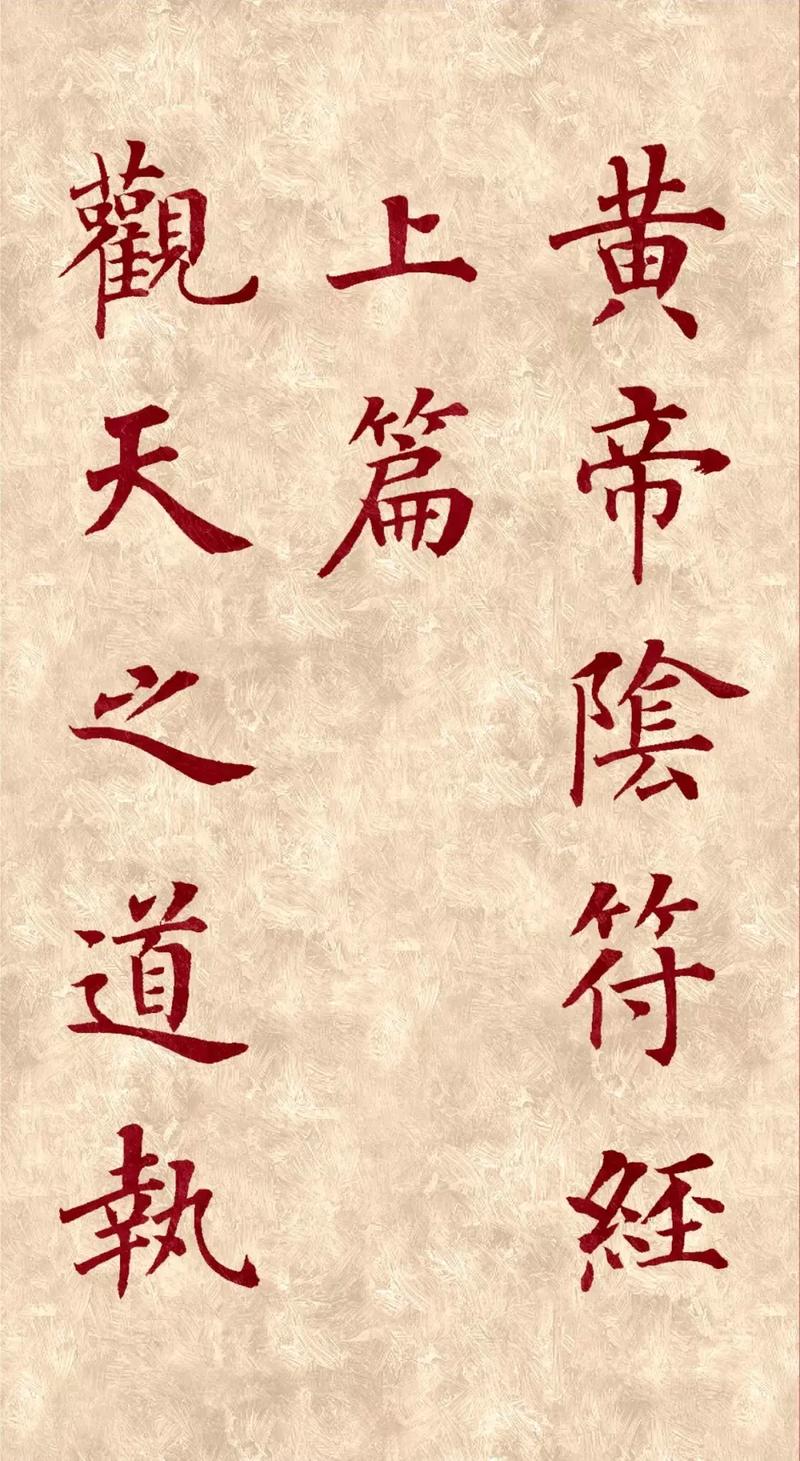 黄帝陰符經
上篇
觀天之道執